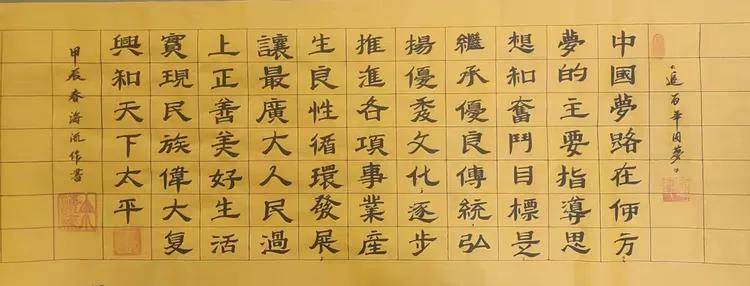 《追百年国夢》
中國夢路在何方,
夢的主要指導思
想和奮鬥目標是,
繼承優良傳統,弘
揚優秀文化,逐步
推進各項事業產
生良性循環發展,
讓最廣大人民過
上正善美好生活
實現民族偉大复
興和天下太平
甲辰春海流作書